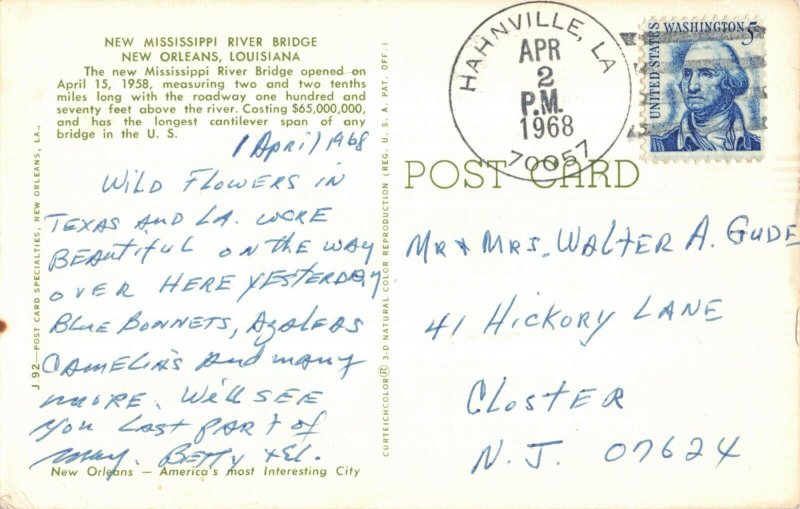 NEW MISSISSIPPI RIVER BRIDGE
NEW ORLEANS, LOUISIANA
The new Mississippi River Bridge opened on
April 15, 1958, measuring two and two tenths
miles long with the roadway one hundred and
seventy feet above the river. Costing $65,000,000,
and has the longest cantilever span of any
bridge in the U. S.
1 April 1968
Wild Flowers in
Texas and La. were
Beautiful on the way
over here yesterday
Blue Bonnets, Azaleas
Camelia's and many
more. We'll see
you last part of
may. Betty + El.
New Orleans — America's most Interesting City
J 92—POST CARD SPECIALTIES, NEW ORLEANS, LA.
CURTEICHCOLOR® 3-D NATURAL COLOR REPRODUCTION (REG. U. S. A. PAT. OFF.)
HAHNVILLE, LA
APR
2
P.M.
1968
70057
UNITED STATES
WASHINGTON 5c
POST CARD
Mr + Mrs. Walter A. Gude
41 Hickory Lane
Closter
N. J. 07624